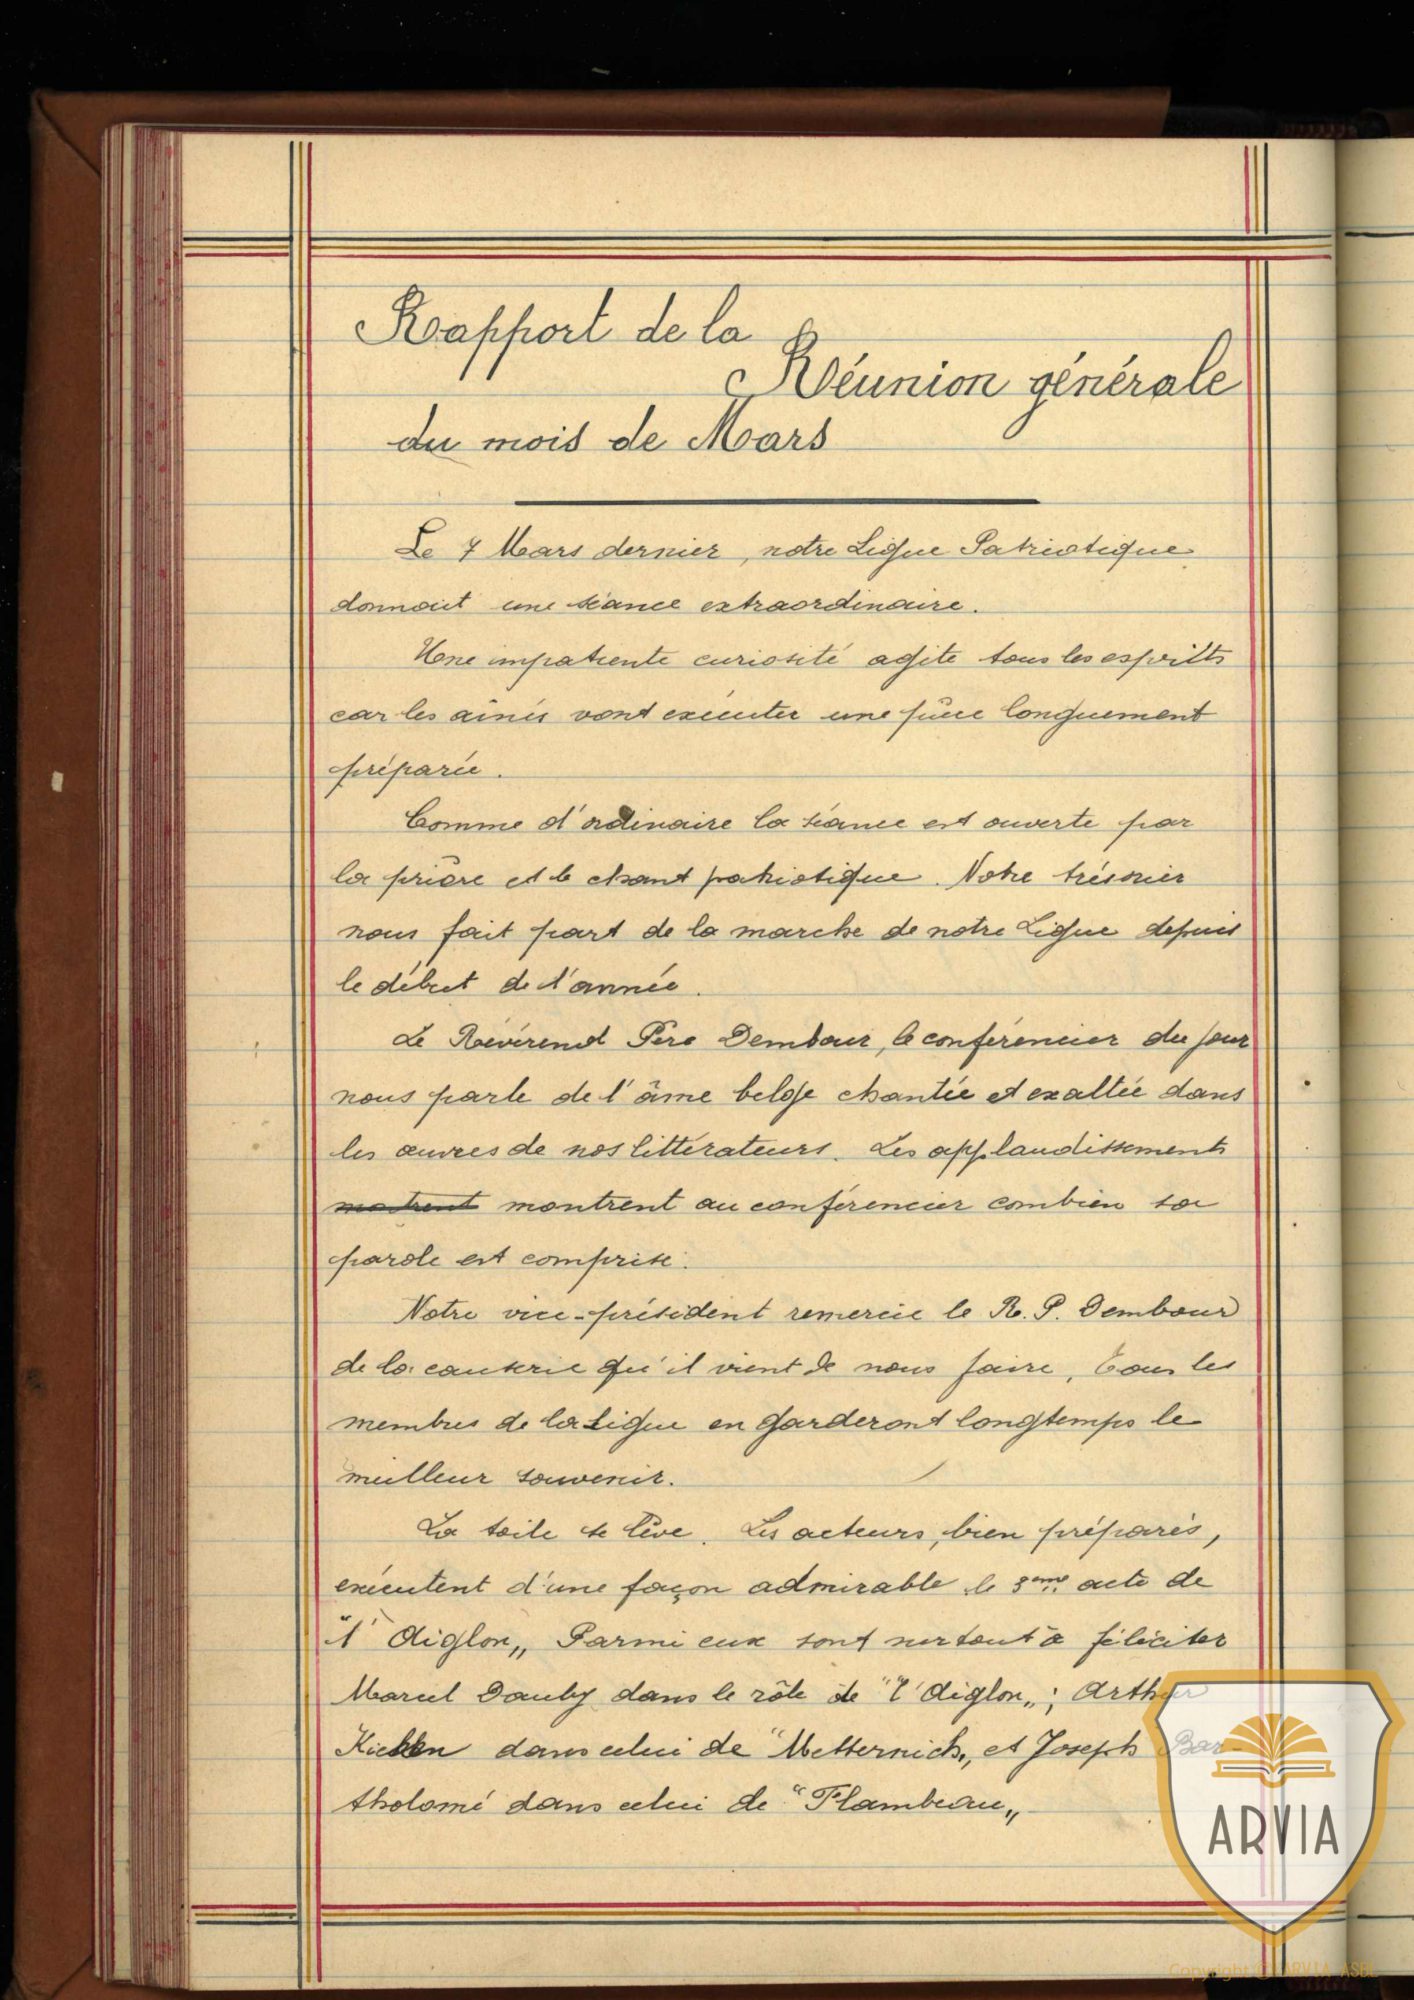 Rapport de la
Réunion générale
du mois de Mars
Le 7 Mars dernier, notre Ligue Patriotique
donnait une séance extraordinaire.
Une impatiente curiosité agite tous les esprits
car les aînés vont exécuter une pièce longuement
préparée.
Comme d'ordinaire la séance est ouverte par
la prière et le chant patriotique. Notre trésorier
nous fait part de la marche de notre Ligue depuis
le début de l'année.
Le Révérend Père Dembour, le conférencier du jour
nous parle de l'âme belge chantée et exaltée dans
les œuvres de nos littérateurs. Les applaudissements
montrent au conférencier combien sa
parole est comprise.
Notre vice-président remercie le R. P. Dembour
de la causerie qu'il vient de nous faire, Tous les
membres de la Ligue en garderont longtemps le
meilleur souvenir.
La toile se lève. Les acteurs, bien préparés,
exécutent d'une façon admirable le 3eme acte de
"l'Aiglon„ Parmi eux sont surtout à féliciter
Marcel Dauby dans le rôle de "l'Aiglon„; Arthur
dans celui de "Metternich„ et Joseph Bar-
tholomé dans celui de "Flambeau„
ARVIA
Copyright © ARVIA ASBL